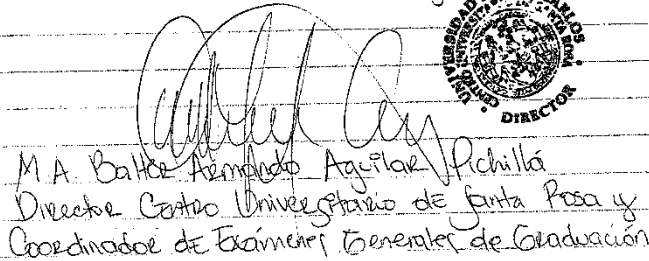 UNIVERSIDAD DE SAN CARLOS
CENTRO UNIVERSITARIO SANTA ROSA
DIRECTOR
M.A. Armando Aguilar Pichillá
Director Centro Universitario de Santa Rosa y
Coordinador de Exámenes Generales de Graduación